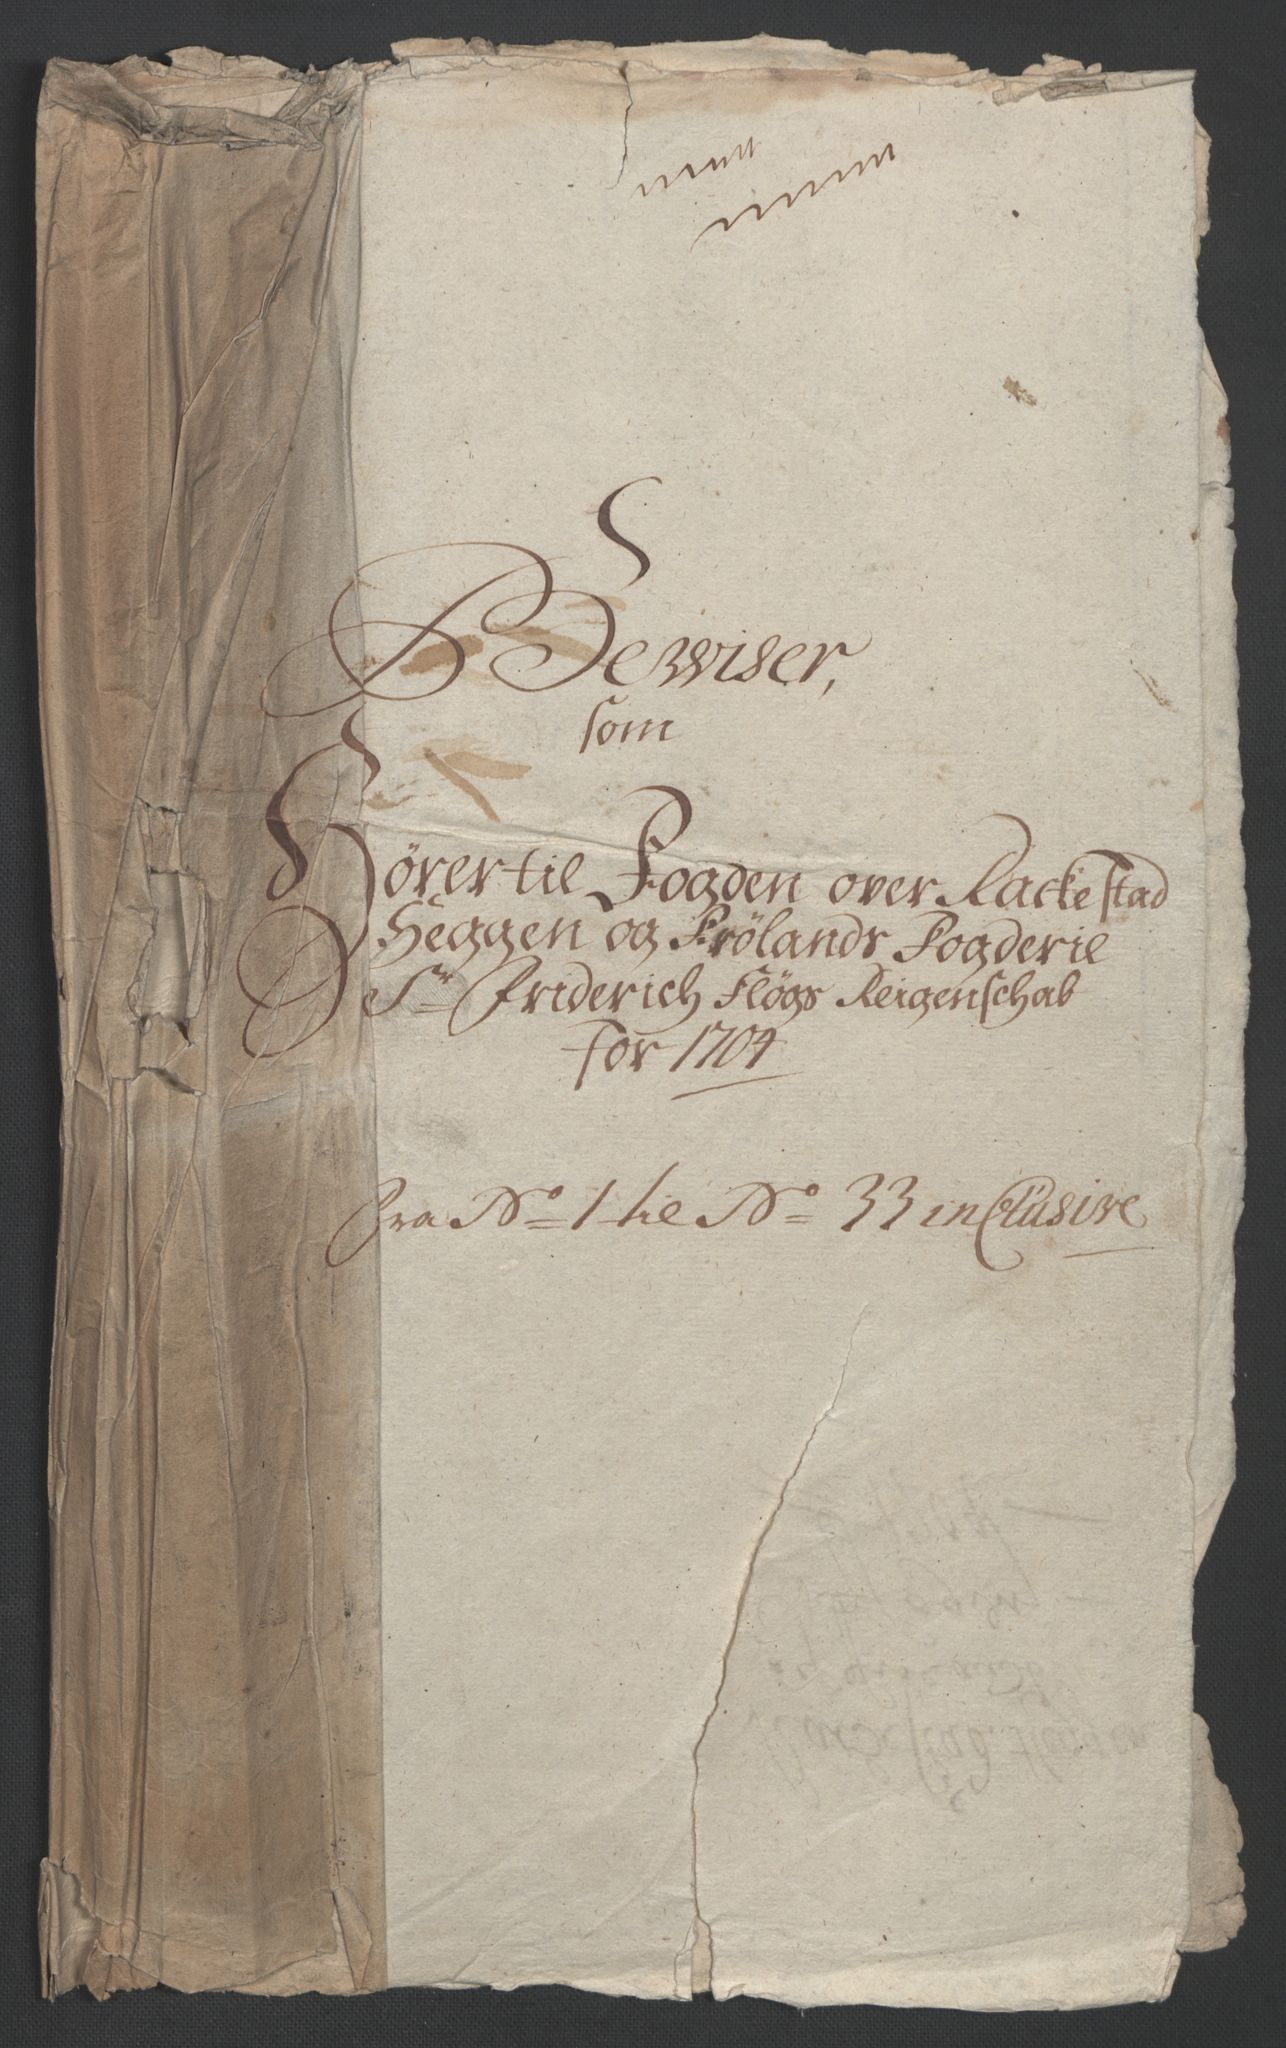 Bewiser,
som
Hörer til Fogden over Rackestad
Heggen og Frölands Fogderie
Sr Friderich Flögs Reigenschab
for 1704
Fra No 1 til No 33 inClusive